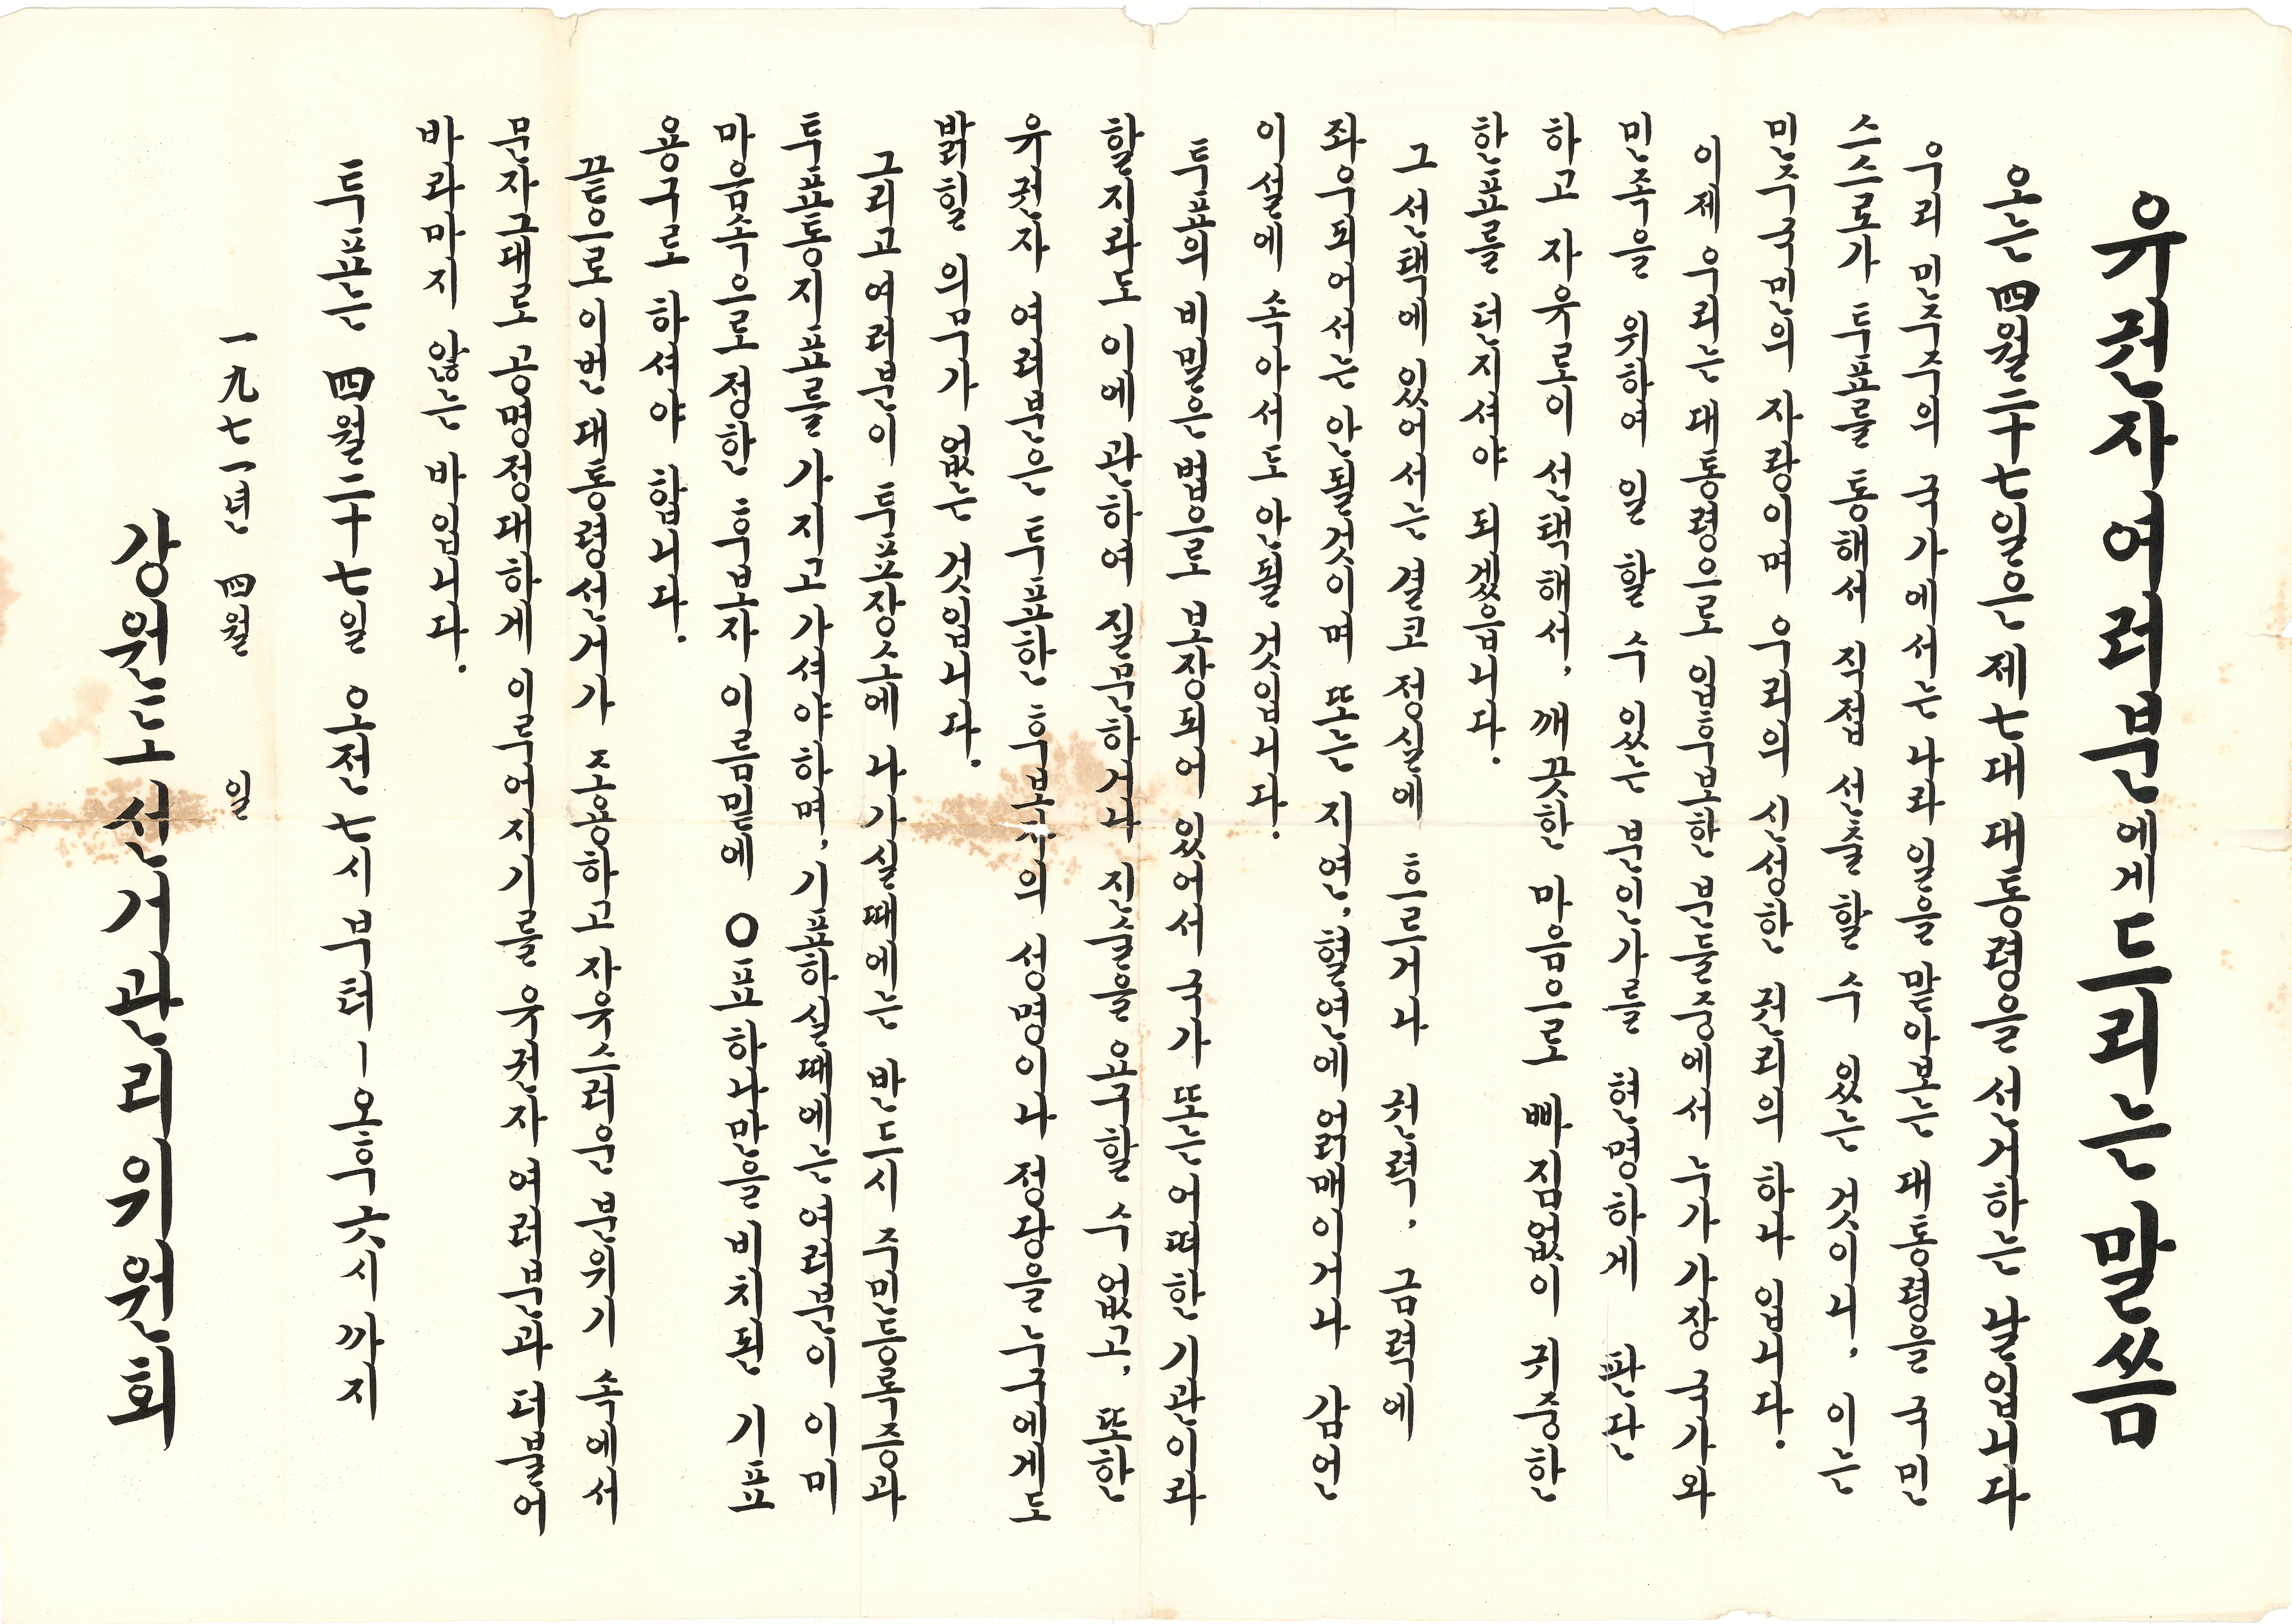 유권자여러분에게드리는 말씀
오는 四월二十七일은 제七대 대통령을 선거하는 날입니다
우리 민주주의 국가에서는 나라 일을 맡아보는 대통령을 국민
스스로가 투표를 통해서 직접 선출 할 수 있는 것이니, 이는
민주국민의 자랑이며 우리의 신성한 권리의 하나 입니다.
이제 우리는 대통령으로 입후보한 분들중에서 누가 가장 국가와
민족을 위하여 일 할 수 있는 분인가를 현명하게 판단
하고 자유로이 선택해서, 깨끗한 마음으로 빠짐없이 귀중한
한표를 던지셔야 되겠읍니다.
그 선택에 있어서는 결코 정실에 흐르거나 권력, 금력에
좌우되어서는 안될것이며 또는 지연, 혈연에 얽매이거나 감언
이설에 속아서도 안될 것입니다.
투표의 비밀은 법으로 보장되어 있어서 국가 또는 어떠한 기관이라
할지라도 이에 관하여 질문하거나 진술을 요구할 수 없고, 또한
유권자 여러분은 투표한 후보자의 성명이나 정당을 누구에게도
밝힐 의무가 없는 것입니다.
그리고 여러분이 투표장소에 나가실때에는 반드시 주민등록증과
투표통지표를 가지고 가셔야하며, 기표하실때에는 여러분이 이미
마음속으로 정한 후보자 이름밑에 ○표 하나만을 비치된 기표
용구로 하셔야 합니다.
끝으로 이번 대통령선거가 조용하고 자유스러운 분위기 속에서
문자그대로 공명정대하게 이루어지기를 유권자 여러분과 더불어
바라마지 않는 바입니다.
투표는 四월二十七일 오전 七시 부터 ㅣ 오후 六시 까지
一九七一년 四월 일
강원도선거관리위원회